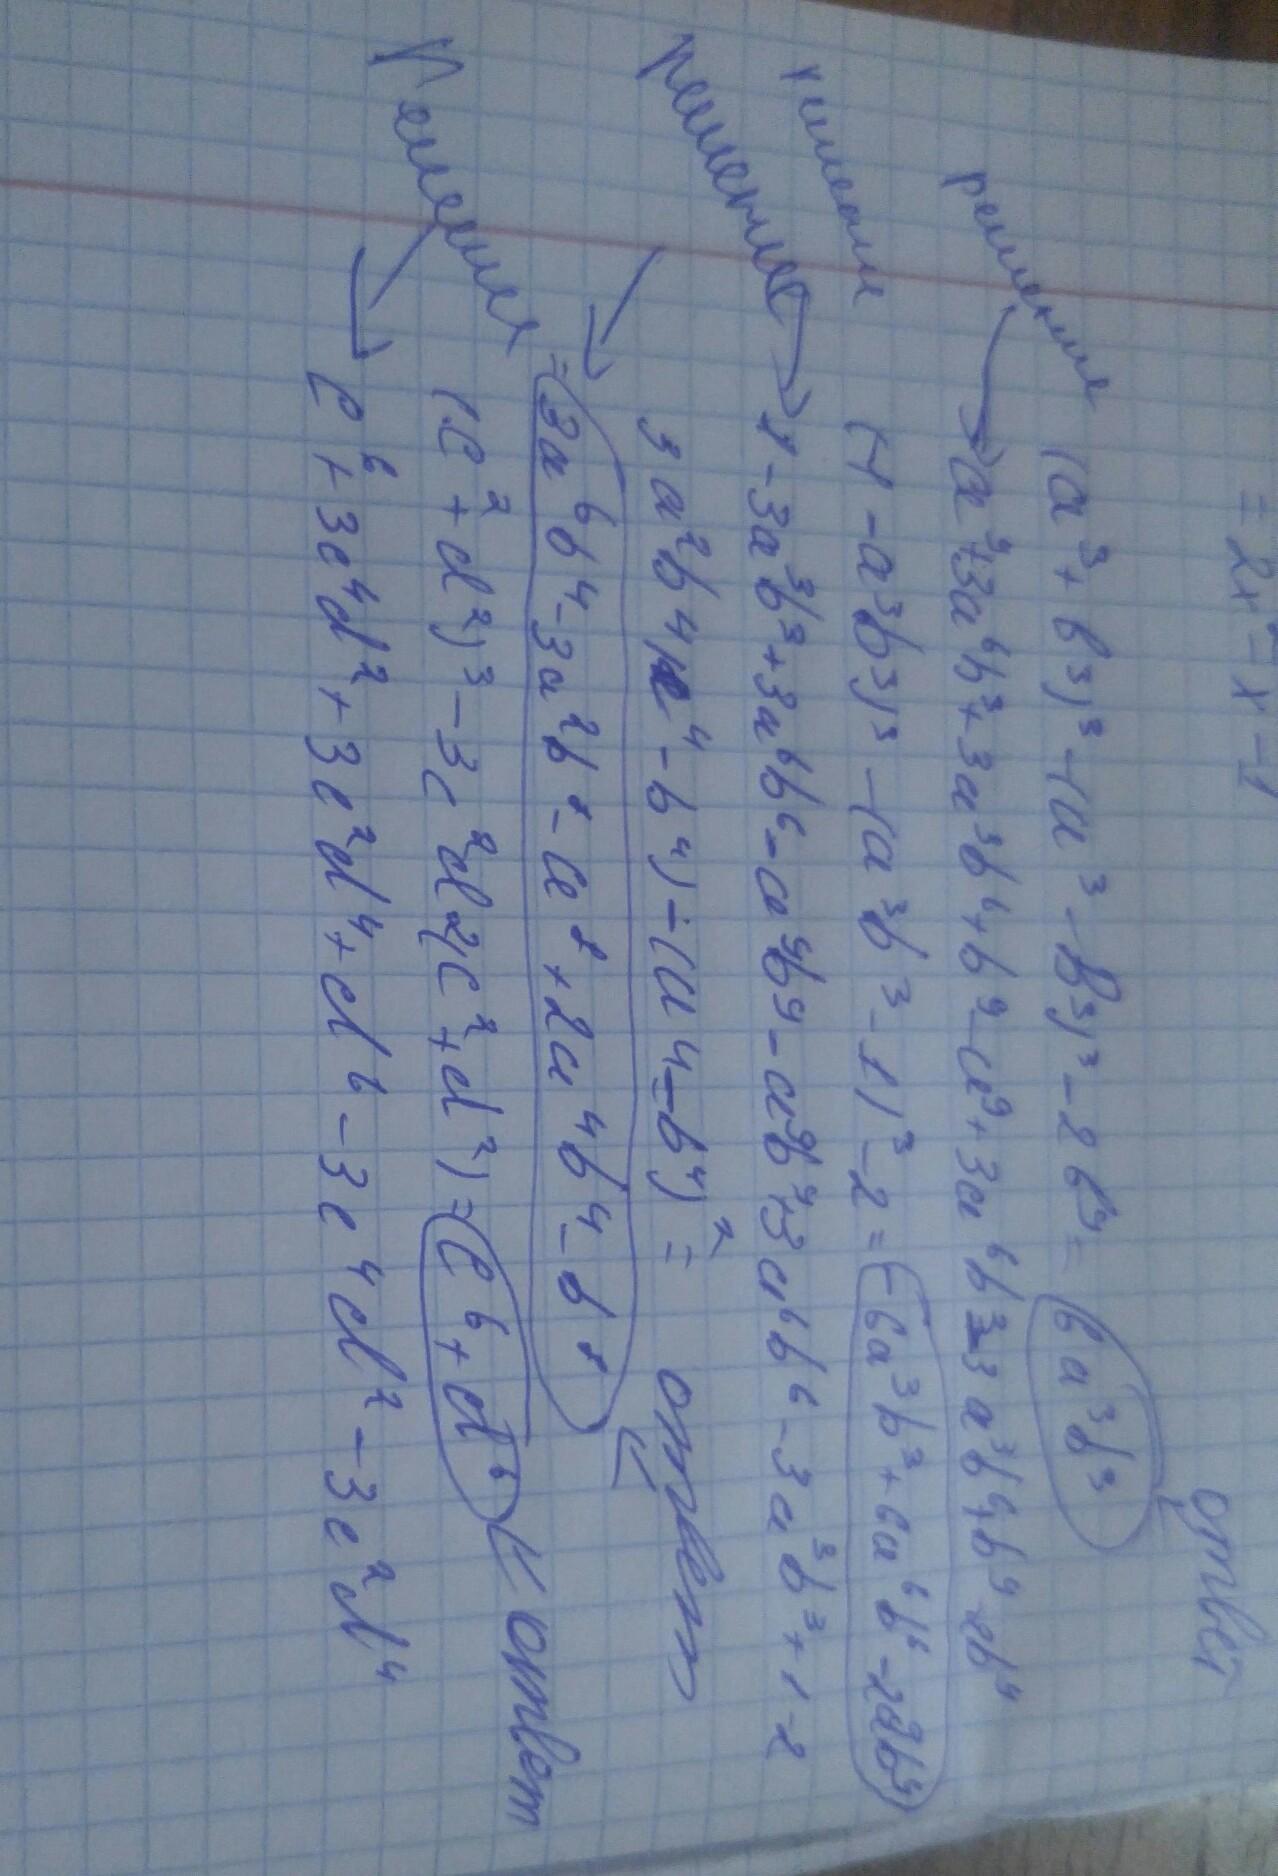 = 2x² - x - 1
ответ
решение (a³ + b³)³ - (a³ - b³)³ - 2b⁹ = 6a³b³
a⁹+3a⁶b³+3a³b⁶+b⁹-a⁹+3a⁶b³-3a³b⁶+b⁹-2b⁹
решение (1 - a³b³)³ - (a³b³ - 1)³ - 2 = -6a³b³ + 6a⁶b⁶ - 2a⁹b⁹
решение 1 - 3a³b³ + 3a⁶b⁶ - a⁹b⁹ - a⁹b⁹+3a⁶b⁶ - 3a³b³ + 1 - 2
3a²b⁴(a⁴ - b⁴) - (a⁴ - b⁴)² = ответ
= 3a⁶b⁴ - 3a²b⁸ - a⁸ + 2a⁴b⁴ - b⁸
Решение (c² + d²)³ - 3c²d²(c² + d²) = c⁶ + d⁶ ответ
c⁶ + 3c⁴d² + 3c²d⁴ + d⁶ - 3c⁴d² - 3c²d⁴